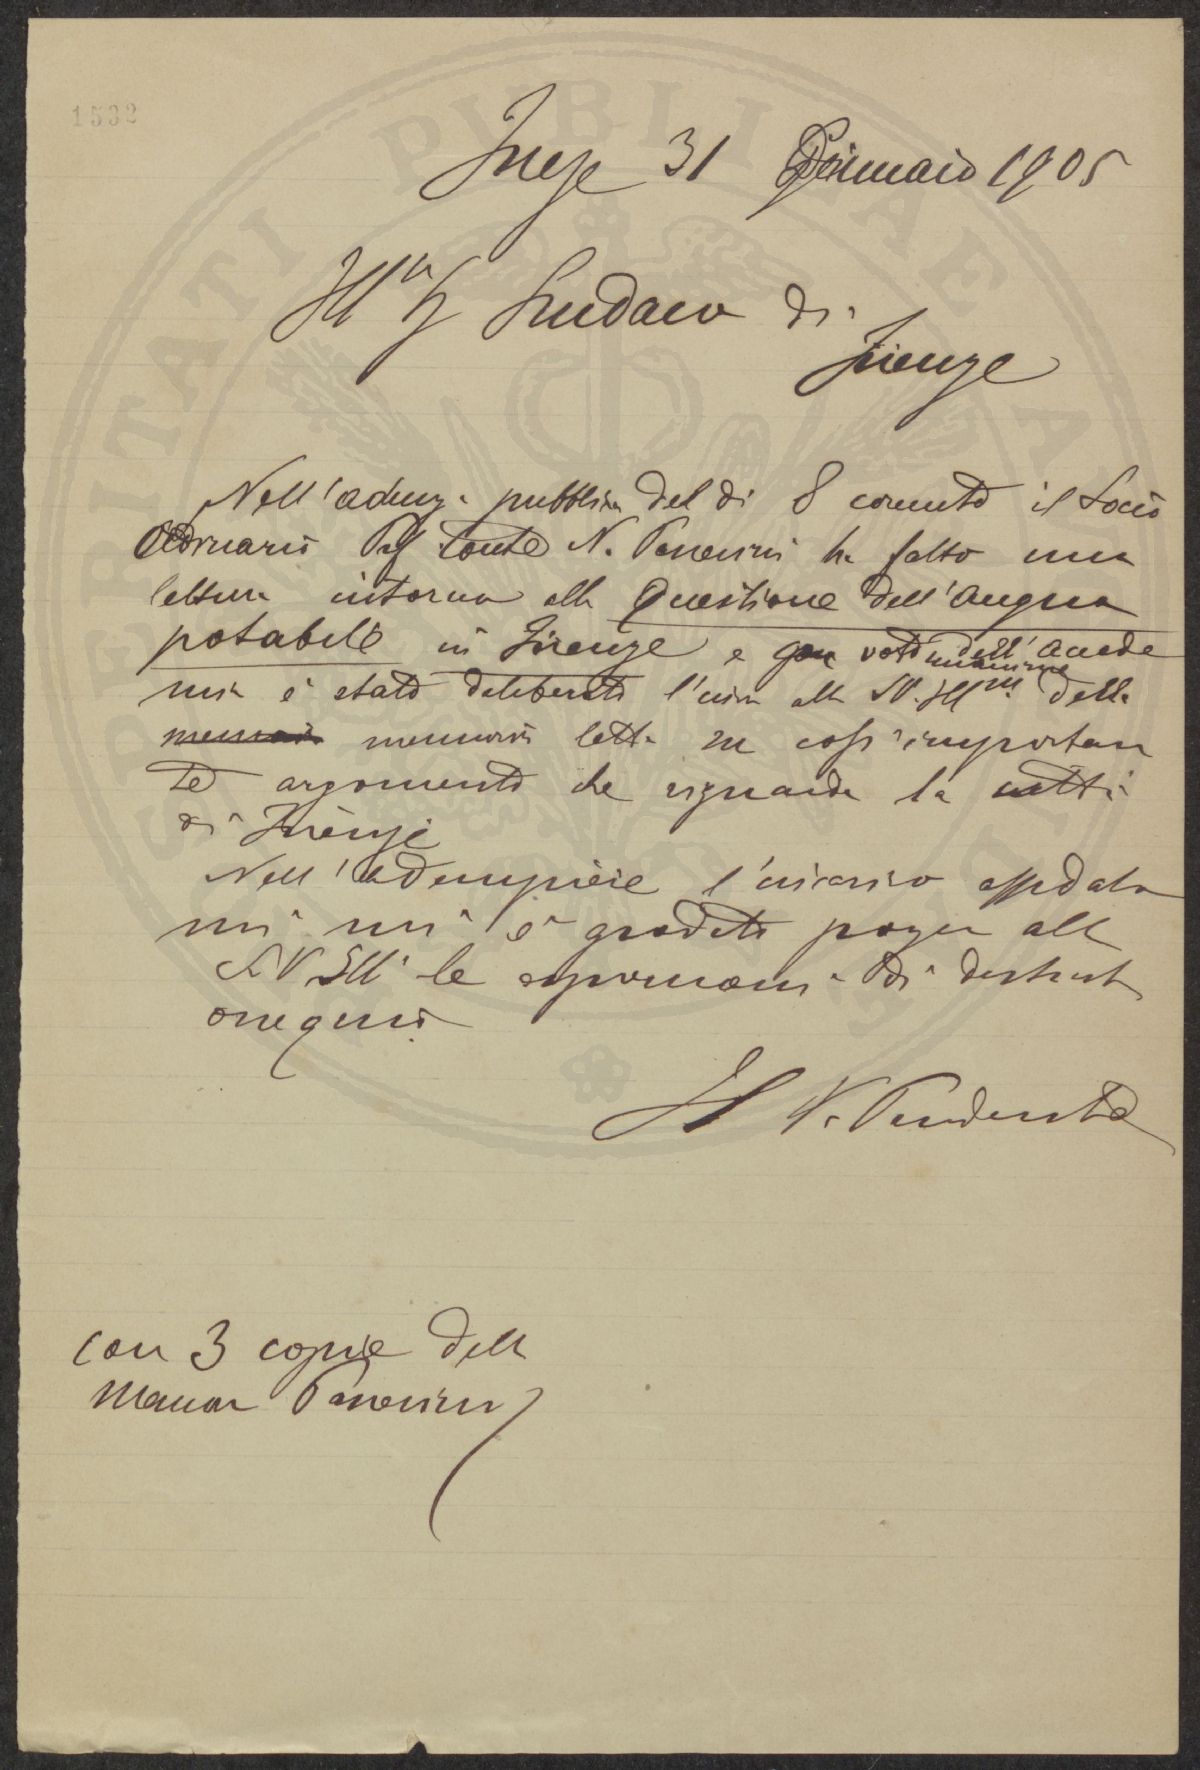 1532
Firenze 31 Gennaio 1905
Ill Sindaco di
Firenze
Nell'adunza pubblica del dì 8 corrente il Socio
Ordinario Prof Conte N. Passerini ha fatto una
lettura intorno alla Questione dell'acqua
potabile in Firenze e con voto dell'Accade
unanime
mia è stato deliberato l'invio alla SV. Ill della
memoria memoria letta su così importan
te argomento che riguarda la città
di Firenze
Nell'adempiere l'incarico affidato
mi mi è gradito porger alla
S.V Ill le espressioni di distint
ossequio
Il V. Presidente
con 3 copie della
Memor Passerini